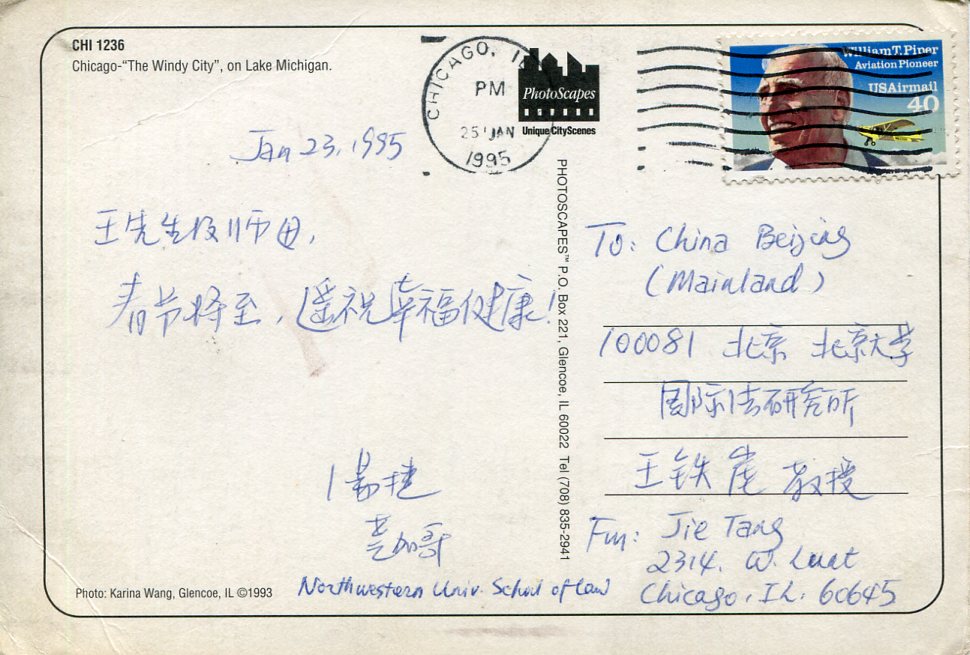 CHI 1236
Chicago-"The Windy City", on Lake Michigan.
Jan 23, 1995
王先生及师母,
春节将至,遥祝幸福健康!
汤捷
芝加哥
Northwestern Univ. School of Law
Photo: Karina Wang, Glencoe, IL ©1993
CHICAGO, IL
PM
25 JAN
1995
PhotoScapes
Unique CityScenes
PHOTOSCAPES™ P.O. Box 221, Glencoe, IL 60022 Tel (708) 835-2941
William T. Piper
Aviation Pioneer
USAirmail
40
To: China Beijing
(Mainland)
100081 北京 北京大学
国际法研究所
王铁崖 教授
Fm: Jie Tang
2314. W. Lunt
Chicago, IL. 60645